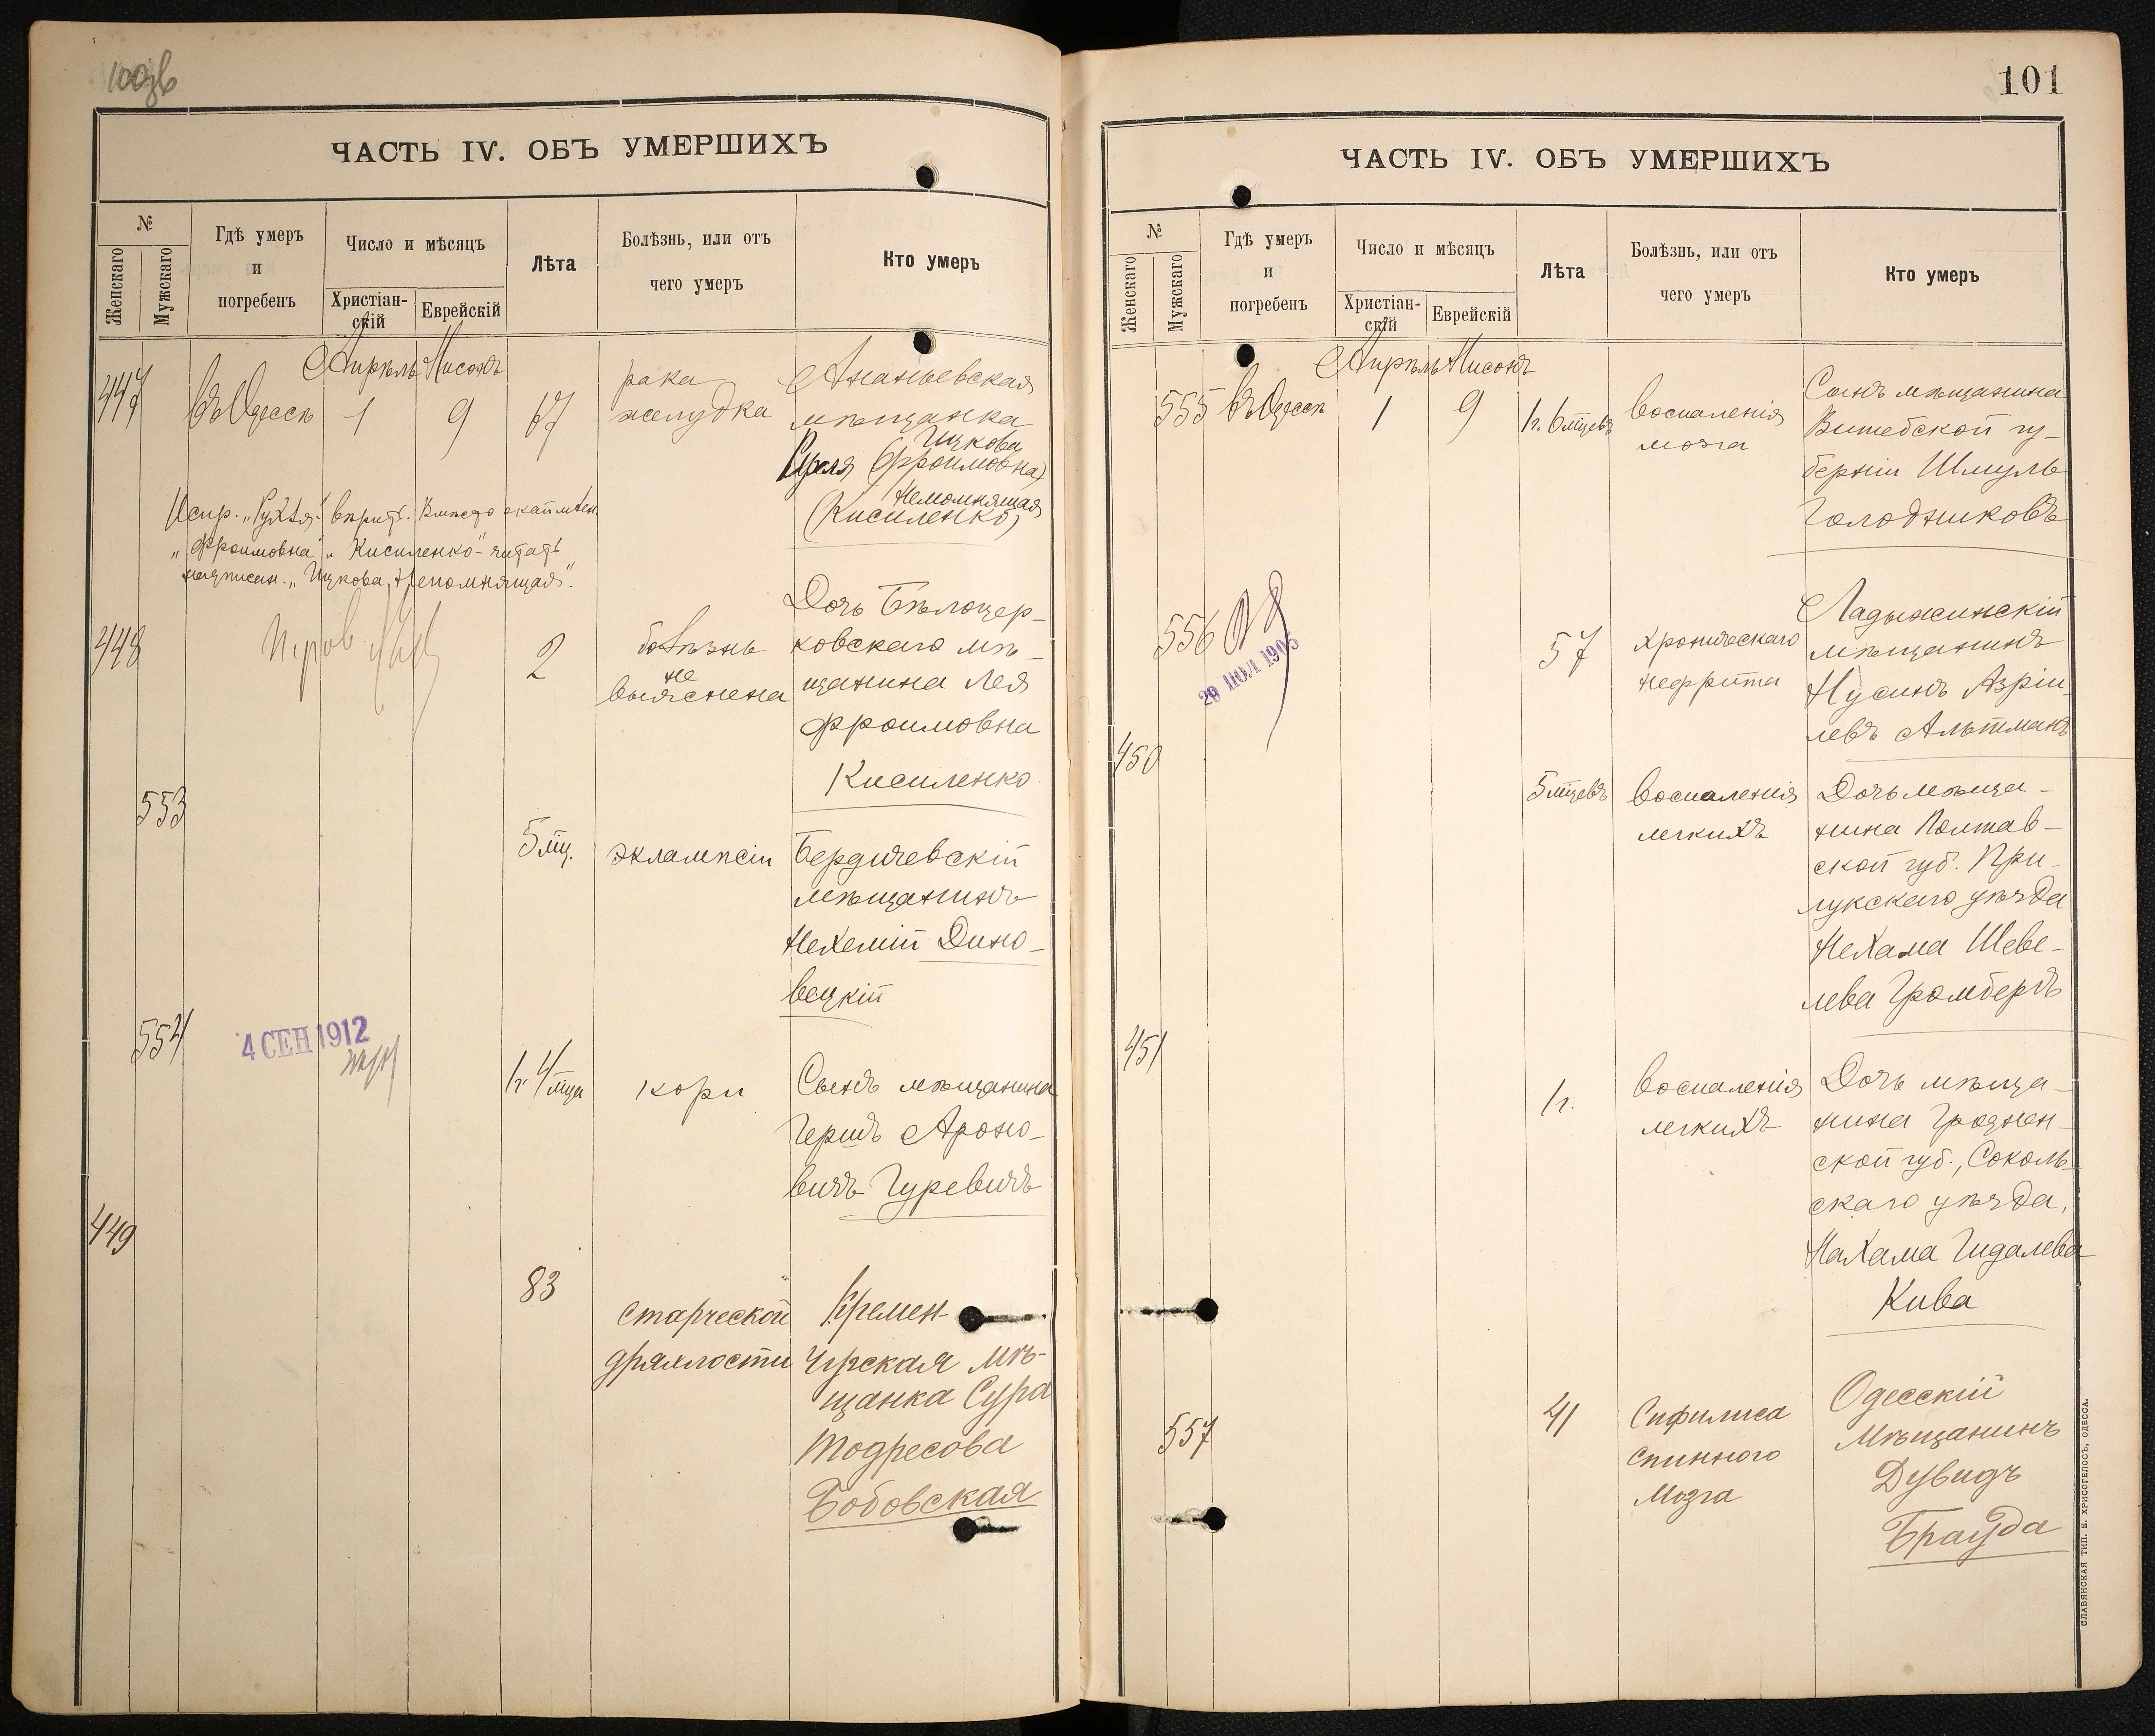 100зв
ЧАСТЬ IV. ОБЪ УМЕРШИХЪ
№
Женскаго
Мужскаго
Гдѣ умеръ
и
погребенъ
Число и мѣсяцъ
Христіан-
скій
Еврейскій
Лѣта
Болѣзнь, или отъ
чего умеръ
Кто умеръ
Апрѣль Нисонъ
447
въ Одессѣ
1
9
67
рака
желудка
Ананьевская
мѣщанка
Ицкова
(Фроимовна)
Непомнящая
(Кисиленко)
Вмѣсто
"Фроимовна" и "Кисиленко" читать
надписан. "Ицкова, Непомнящая".
448
2
болѣзнь
не
выяснена
Дочь Бѣлоцер-
ковскаго мѣ-
щанина Лея
Фроимовна
Кисиленко
553
5 мц.
эклампсіи
Бердичевскій
мѣщанинъ
Нехемій Дино-
вецкій
554
4 СЕН 1912
1г. 4 мца
кори
Сынъ мѣщанина
Гершъ Ароно-
вичъ Гуревичъ
449
83
старческой
дряхлости
Кремен-
чугская мѣ-
щанка Сура
Тодресова
Бобовская
101
ЧАСТЬ IV. ОБЪ УМЕРШИХЪ
№
Женскаго
Мужскаго
Гдѣ умеръ
и
погребенъ
Число и мѣсяцъ
Христіан-
скій
Еврейскій
Лѣта
Болѣзнь, или отъ
чего умеръ
Кто умеръ
Апрѣль Нисонъ
555
въ Одессѣ
1
9
1г. 6 мцевъ
воспаленія
мозга
Сынъ мѣщанина
Витебской гу-
берніи Шмуль
Голодниковъ
556
29 ІЮЛ 1905
57
хроническаго
нефрита
Ладыжинскій
мѣщанинъ
Нусинъ Азріи-
левъ Альтманъ
450
5 мцевъ
воспаленія
легкихъ
Дочь мѣща-
нина Полтав-
ской губ. При-
лукскаго уѣзда
Нехама Шеве-
лева Громбергъ
451
1г.
воспаленія
легкихъ
Дочь мѣща-
нина Гроднен-
ской губ., Соколь-
скаго уѣзда,
Нахама Гидалева
Кива
557
41
Сифилиса
спинного
мозга
Одесскій
мѣщанинъ
Дувидъ
Брауда
СЛАВЯНСКАЯ ТИП. Е. ХРИСОГЕЛОСЪ, ОДЕССА.